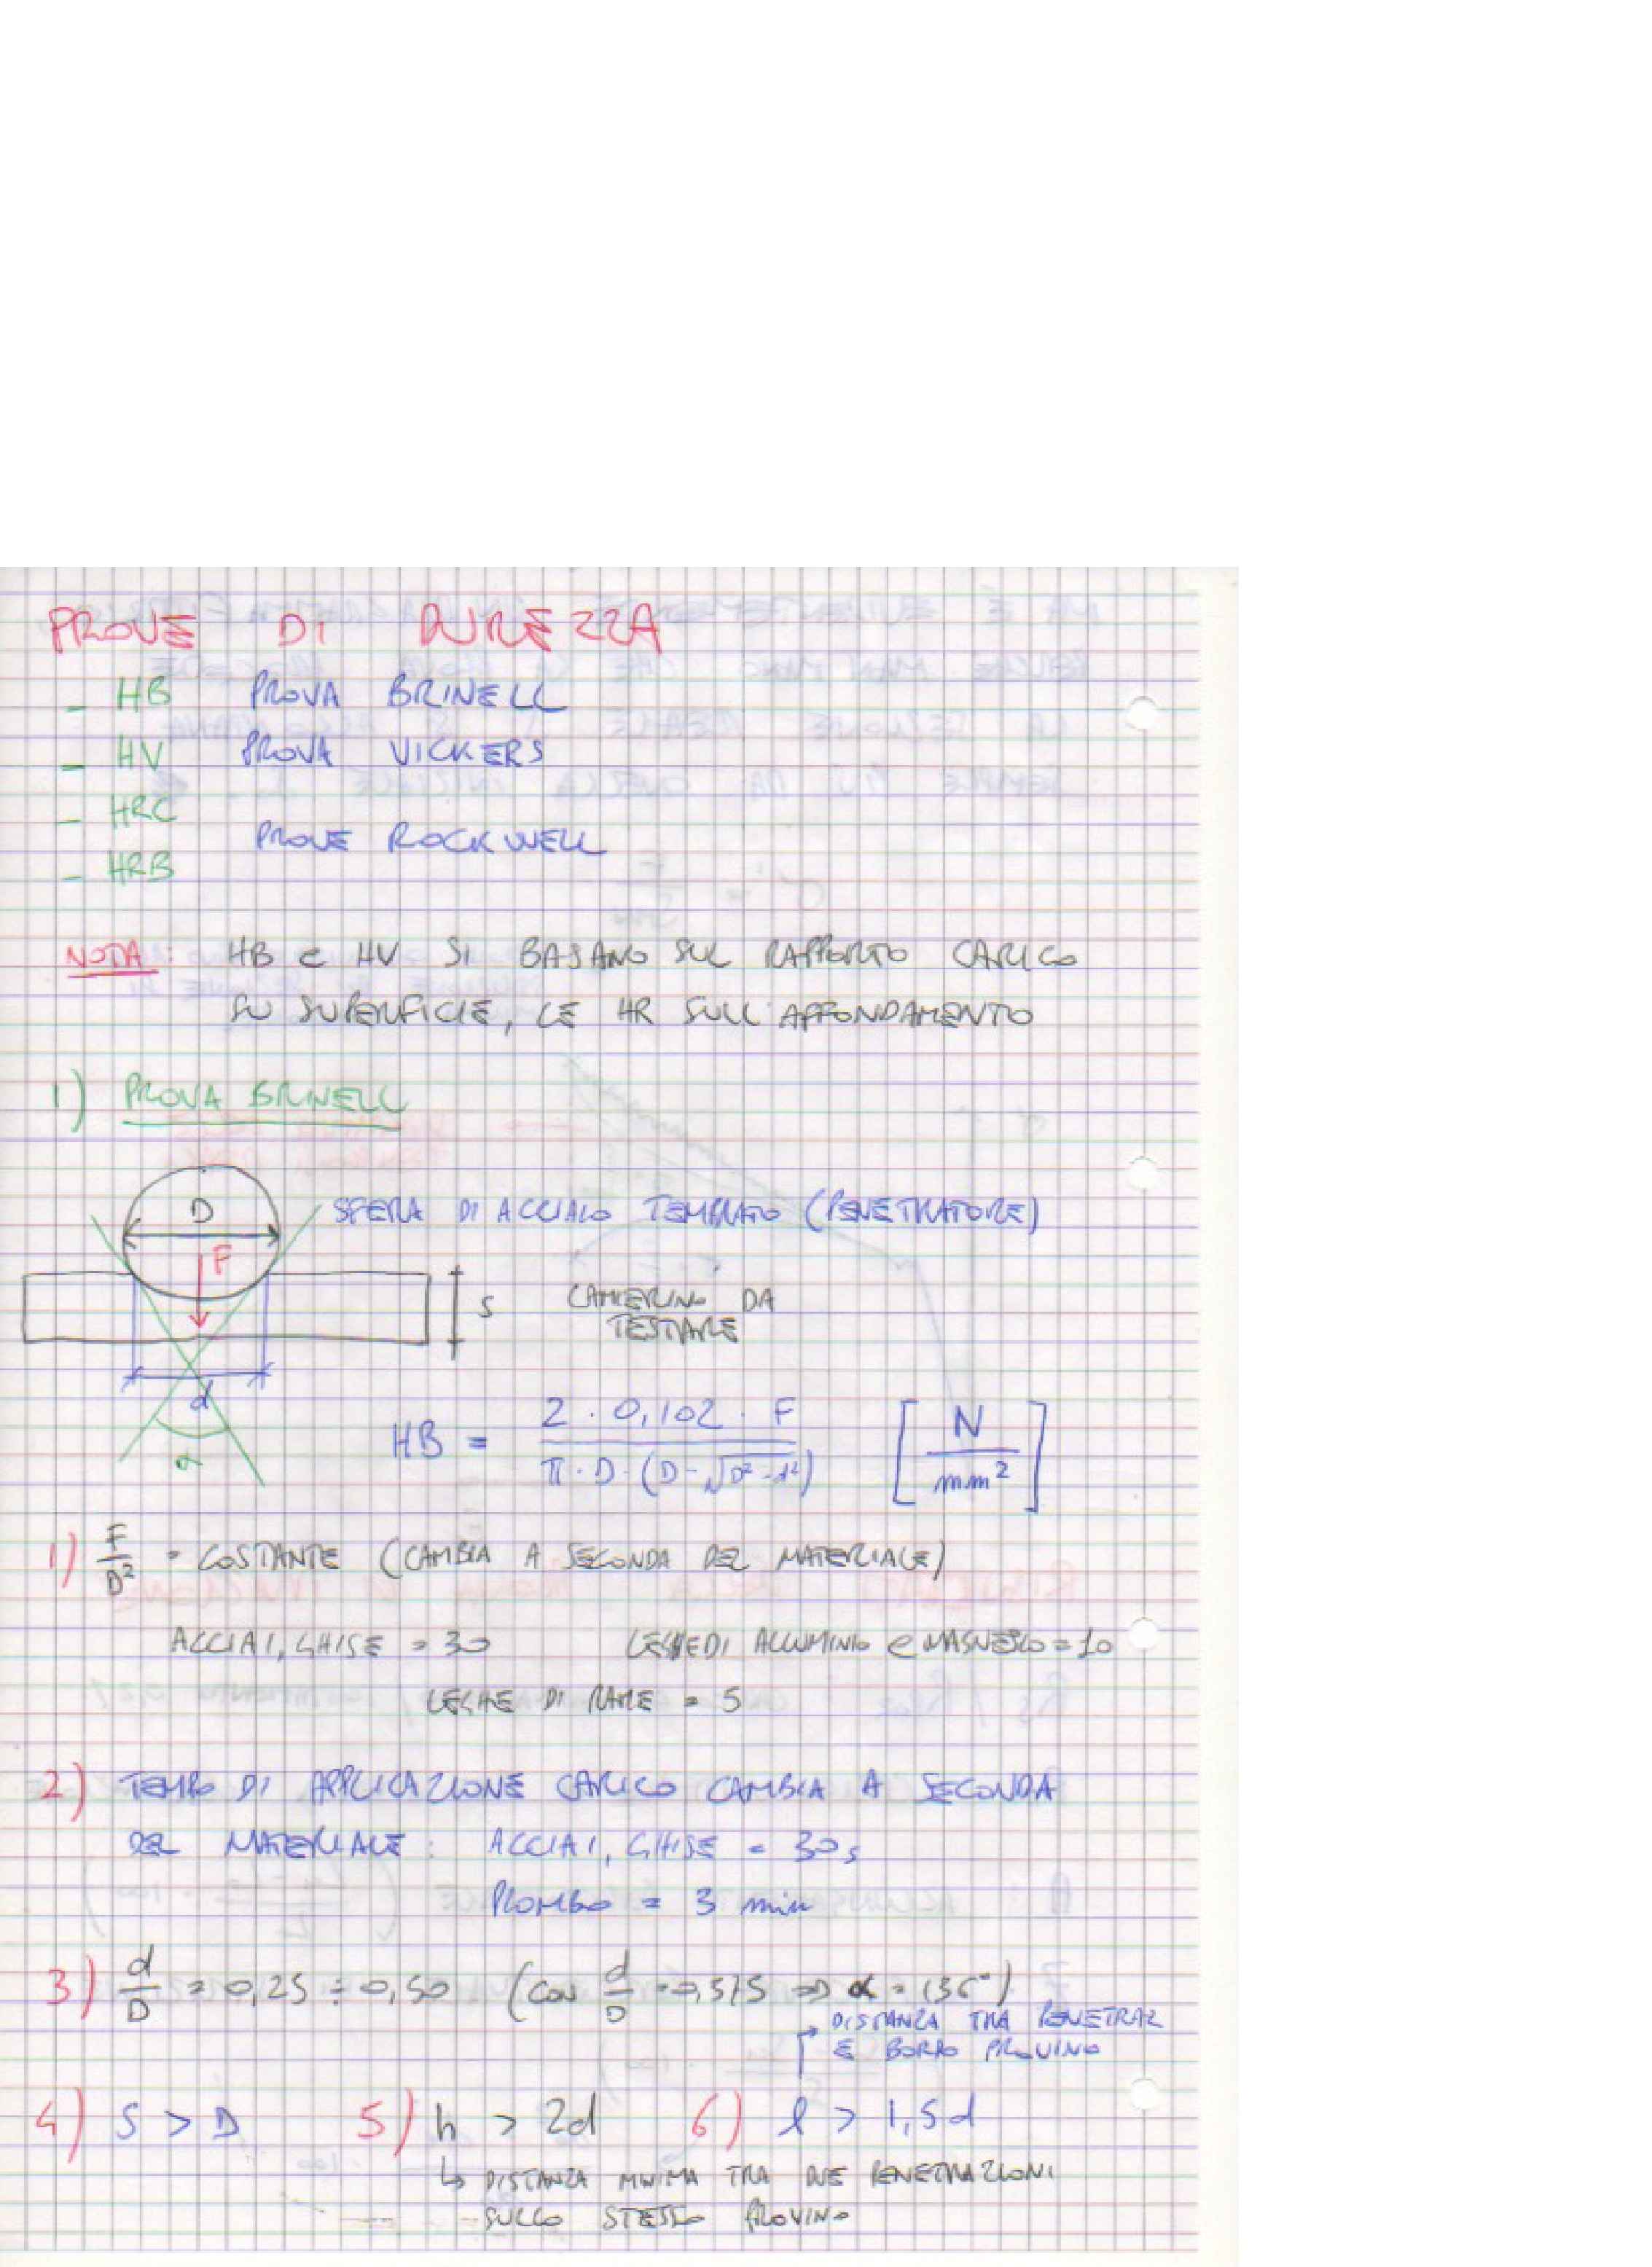 PROVE DI DUREZZA
- HB PROVA BRINELL
- HV PROVA VICKERS
- HRC
PROVE ROCKWELL
- HRB
NOTA: HB e HV SI BASANO SUL RAPPORTO CARICO
SU SUPERFICIE, LE HR SULL'AFFONDAMENTO
1) PROVA BRINELL
D
SFERA DI ACCIAIO TEMPRATO (PENETRATORE)
F
S
CAMPIONE DA
TESTARE
d
α
HB = 2 · 0,102 · F / π · D · (D - √D² - d²) [N / mm²]
1) F/D² = COSTANTE (CAMBIA A SECONDA DEL MATERIALE)
ACCIAI, GHISE = 30 LEGHE DI ALLUMINIO e MAGNESIO = 10
LEGHE DI RAME = 5
2) TEMPO DI APPLICAZIONE CARICO CAMBIA A SECONDA
DEL MATERIALE: ACCIAI, GHISE = 30s
PIOMBO = 3 min
3) d/D = 0,25 ÷ 0,50 (CON d/D = 0,375 => α = 136°)
DISTANZA TRA PENETRAZ
E BORDO PROVINO
4) S > D 5) h > 2d 6) l > 1,5d
↳ DISTANZA MINIMA TRA DUE PENETRAZIONI
SULLO STESSO PROVINO